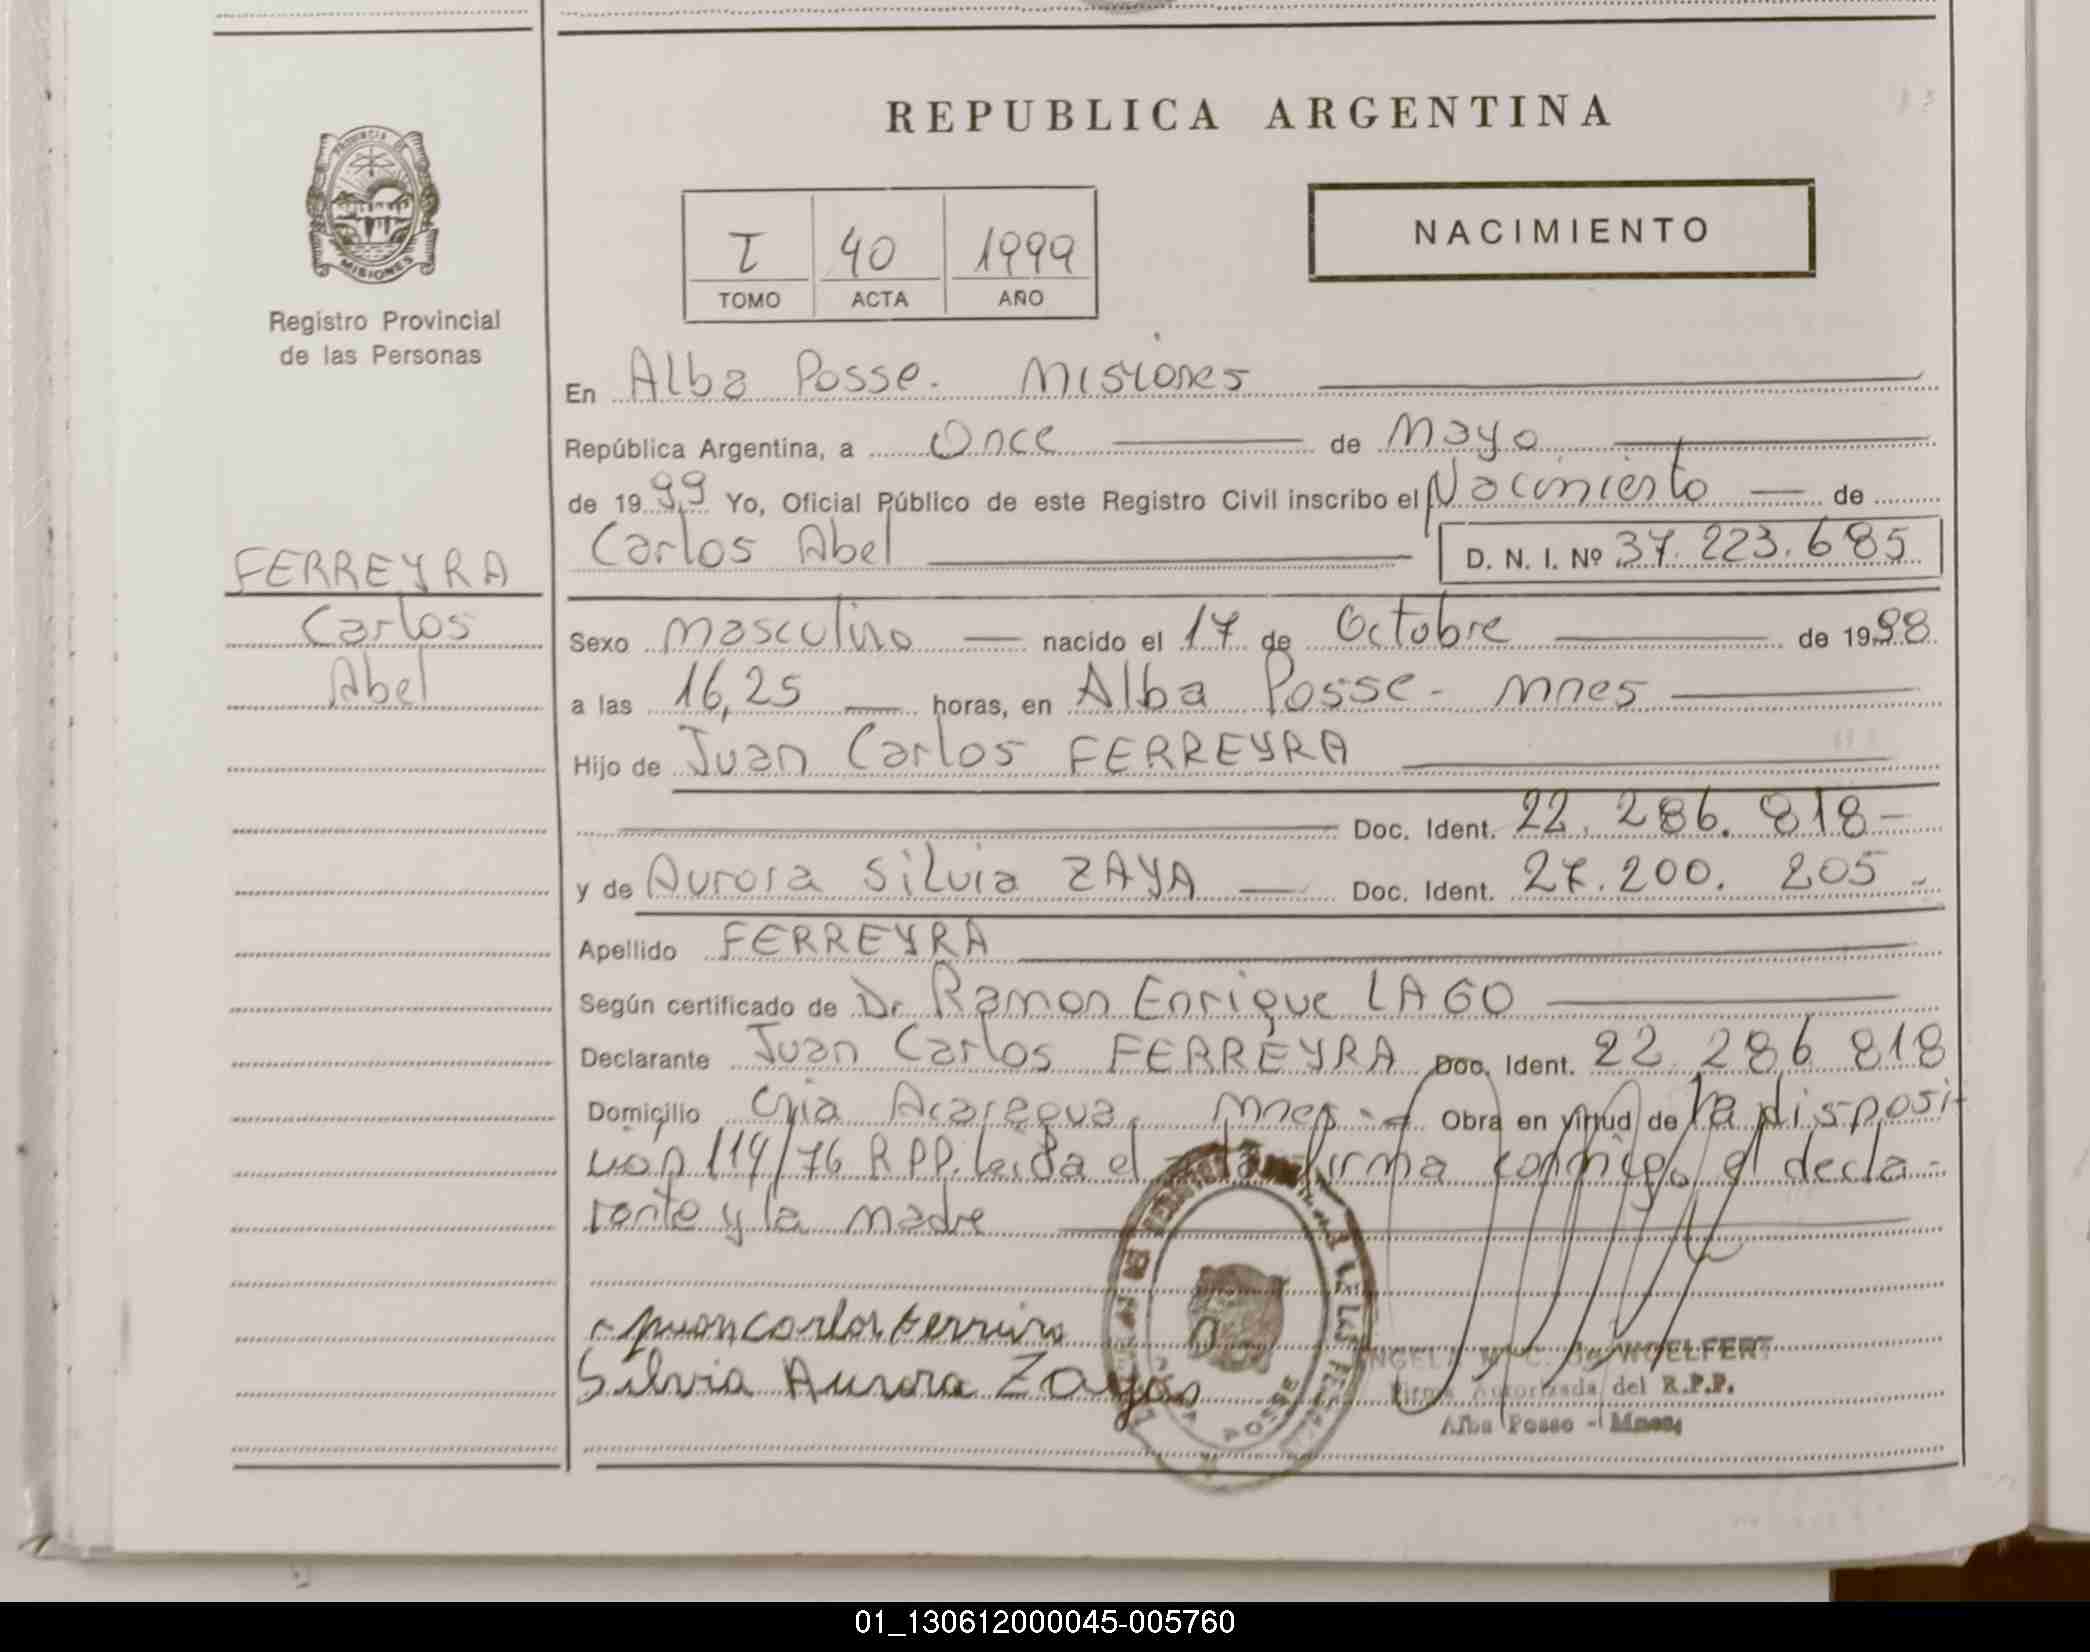 REPUBLICA ARGENTINA
PROVINCIA DE
MISIONES
Registro Provincial
de las Personas
I 40 1999
TOMO ACTA AÑO
NACIMIENTO
En Alba Posse. Misiones
República Argentina, a Once de Mayo
de 1999 Yo, Oficial Público de este Registro Civil inscribo el Nacimiento de
Carlos Abel D. N. I. Nº 37.223.685
FERREYRA
Carlos
Abel
Sexo masculino nacido el 17 de Octubre de 1998
a las 16,25 horas, en Alba Posse - Mnes
Hijo de Juan Carlos FERREYRA
Doc. Ident. 22.286.818-
y de Aurora Silvia ZAYA Doc. Ident. 27.200.205-
Apellido FERREYRA
Según certificado de Dr Ramon Enrique LAGO
Declarante Juan Carlos FERREYRA Doc. Ident. 22.286.818
Domicilio Cnia Acaragua, Mnes.- Obra en virtud de la disposi-
ción 114/76 RPP. leida el acta firma conmigo el decla-
rante y la madre
Juan Carlos ferreira
Silvia Aurora Zayas
WOELFERT
Firma Autorizada del R.P.P.
Alba Posse - Mnes.
POSSE
01_130612000045-005760